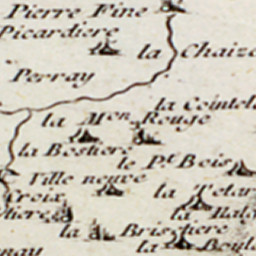 Pierre Fine
Picardiere
la Chaize
Perray
la Cointel
la Mon Rouge
la Bestiere
le Pt. Bois
Ville neuve
la Tetar
Croix
la Brissiere
la